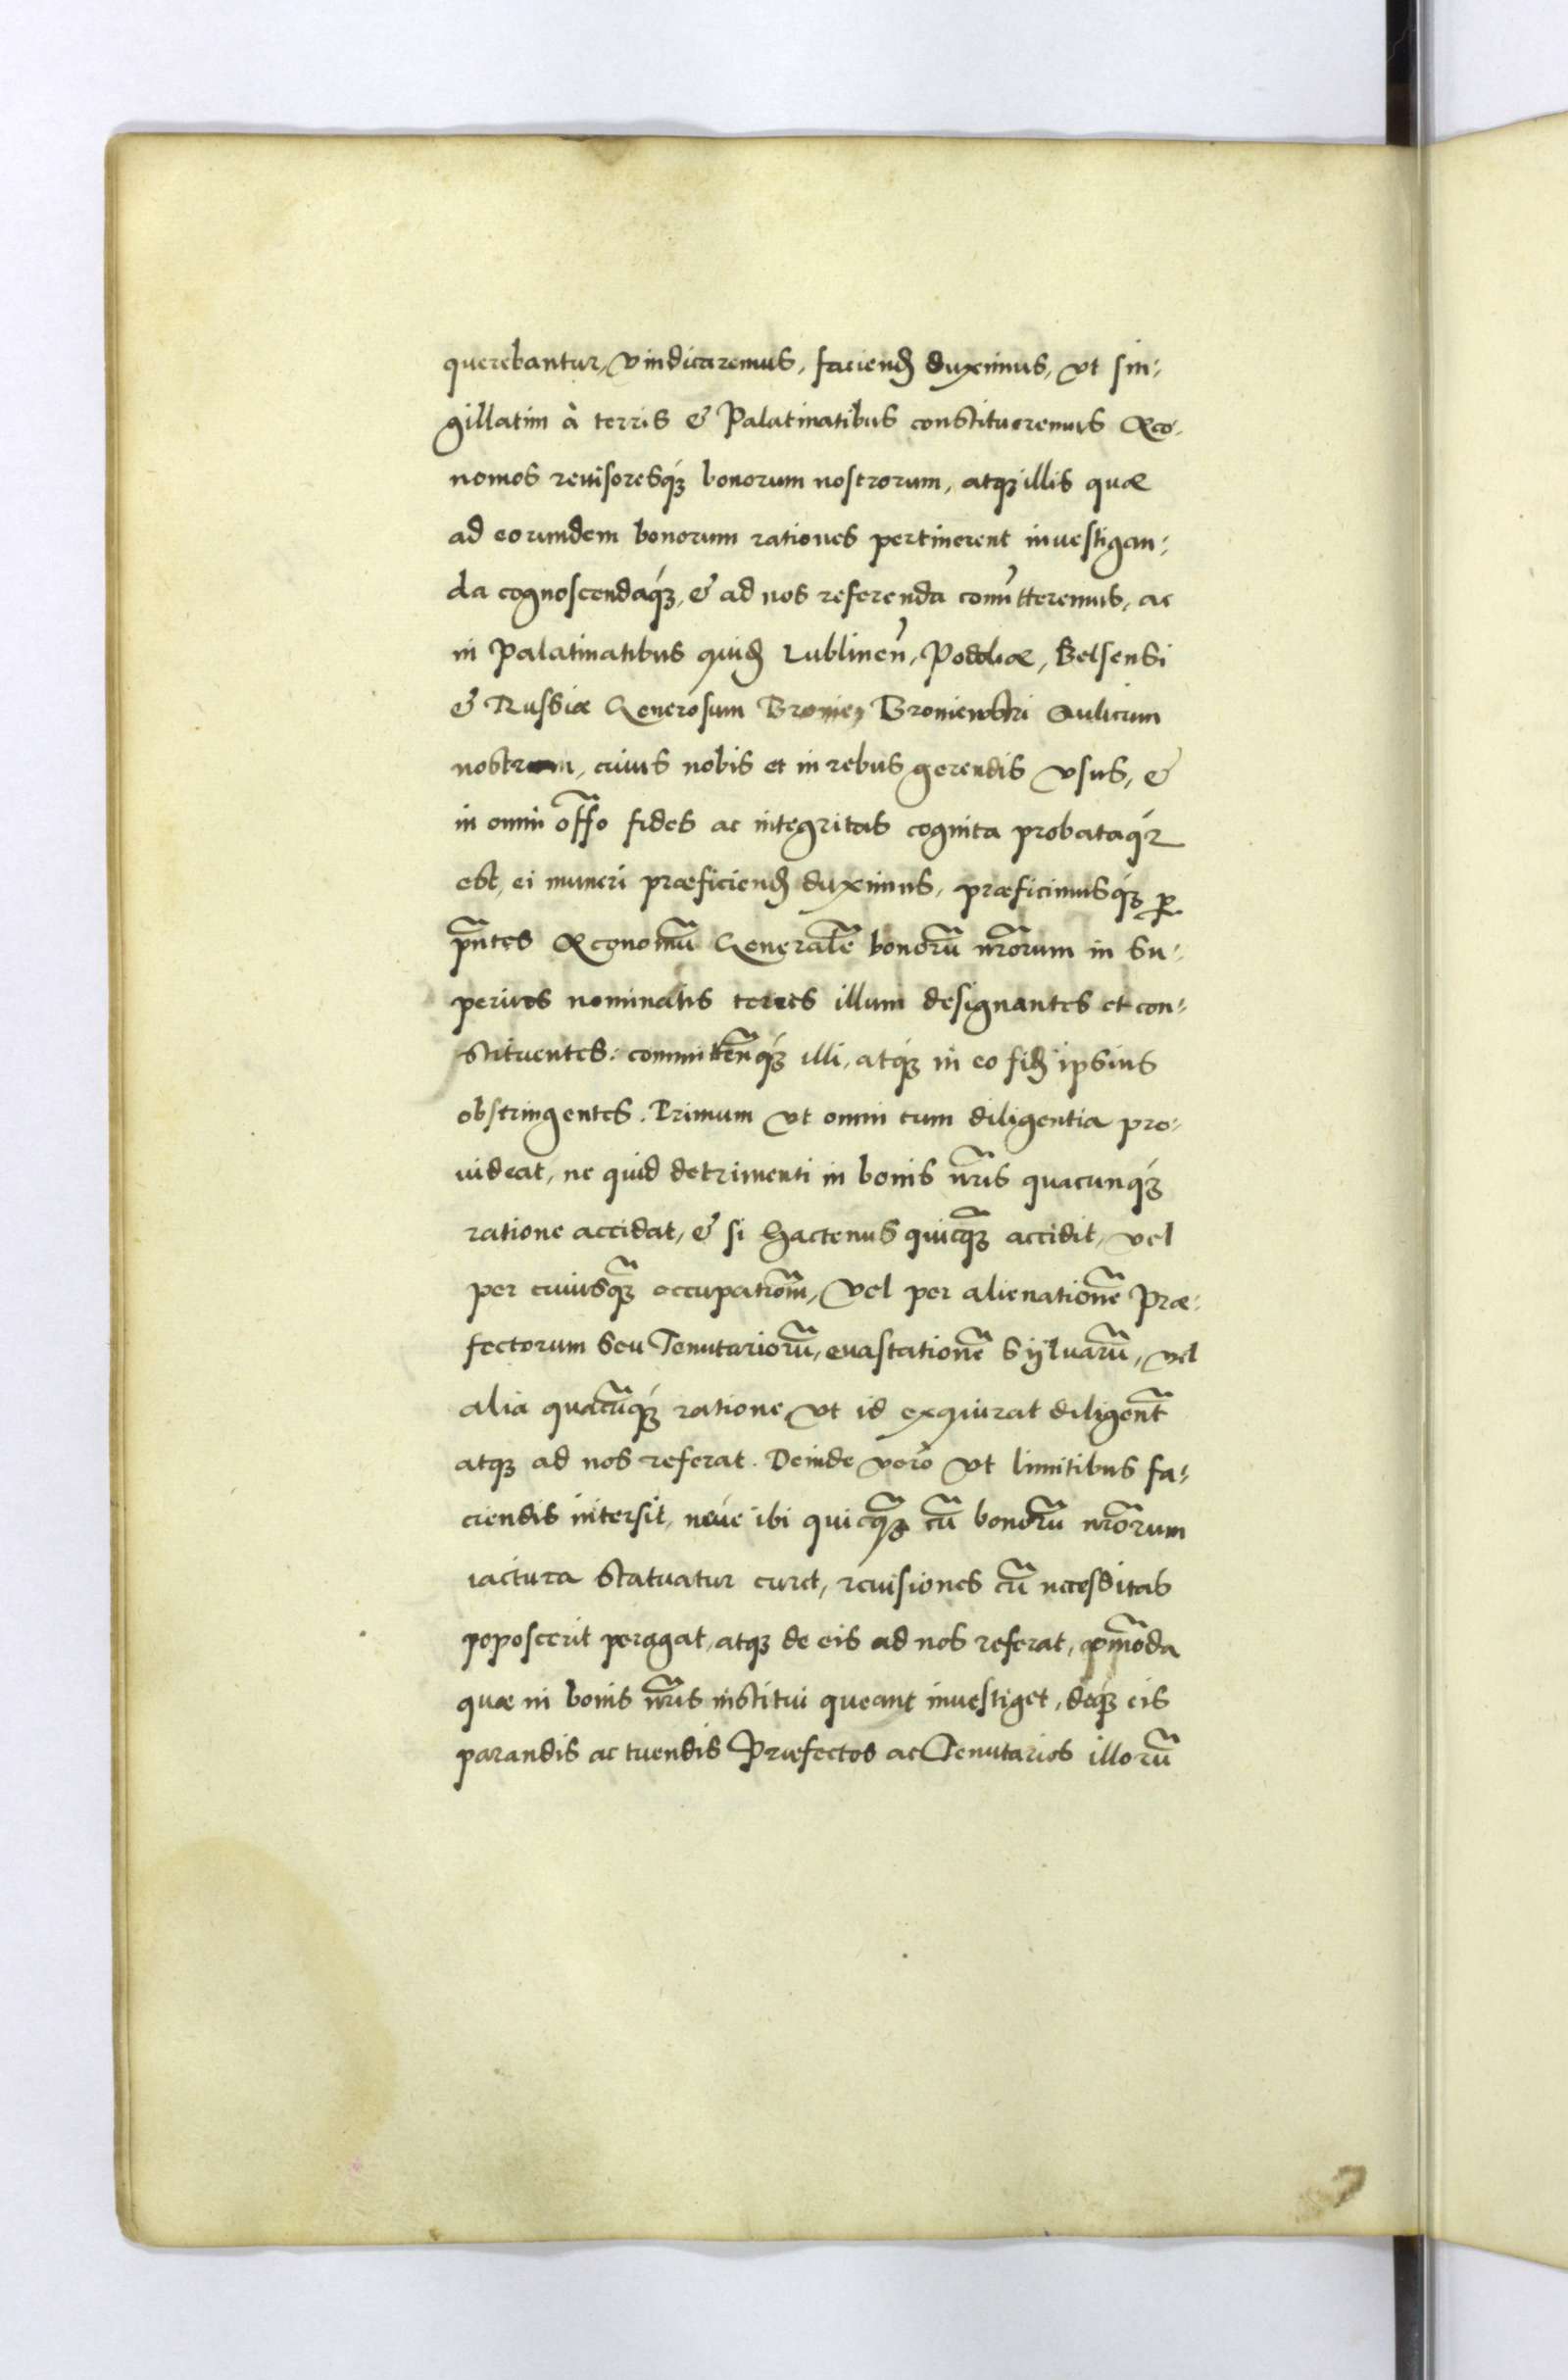 querebantur, vindicaremus, faciend̃ duximus, vt sin-
gillatim à terris & Palatinatibus constitueremus Œco-
nomos reuisoresq́ꝫ bonorum nostrorum, atqꝫ illis quæ
ad eorundem bonorum rationes pertinerent inuestigan-
da cognoscendaq́ꝫ, & ad nos referenda com̃itteremus, ac
in Palatinatibus quid̃ Lublineñ, Podoliæ, Belsensi
& Russiæ Generosum Aulicum
nostrum, cuius nobis et in rebus gerendis vsus, &
in omni off̃o fides ac integritas cognita probataq́ꝫ
est, ei muneri præficiend̃ duximus, præficimusq́ꝫ ꝑ
p̃ntes Œconomũ Generalẽ bonorũ nr̃orum in su-
perius nominatis terris illum designantes et con-
stituentes: committeñq́ꝫ illi, atq́ꝫ in eo fid̃ ipsius
obstringentes. Primum vt omni cum diligentia pro-
uideat, ne quid detrimenti in bonis nr̃is quacunq́ꝫ
ratione accidat, & si hactenus quicq̃ꝫ accidit, vel
per cuiusq̃ꝫ occupatiom̃, vel per alienationẽ Præ-
fectorum seu Tenutariorũ, euastationẽ Syluarũ, vel
alia quacũq́ꝫ ratione vt id exquirat diligent̃
atqꝫ ad nos referat. Deinde verò vt limitibus fa-
ciendis intersit, neúe ibi quicq̃ꝫ cũ bonorũ nr̃orum
iactura statuatur curet, reuisiones cũ necessitas
poposcerit peragat, atqꝫ de eis ad nos referat, com̃oda
quæ in bonis nr̃is institui queant inuestiget, deq́ꝫ eis
parandis ac tuendis Præfectos ac Tenutarios illorũ